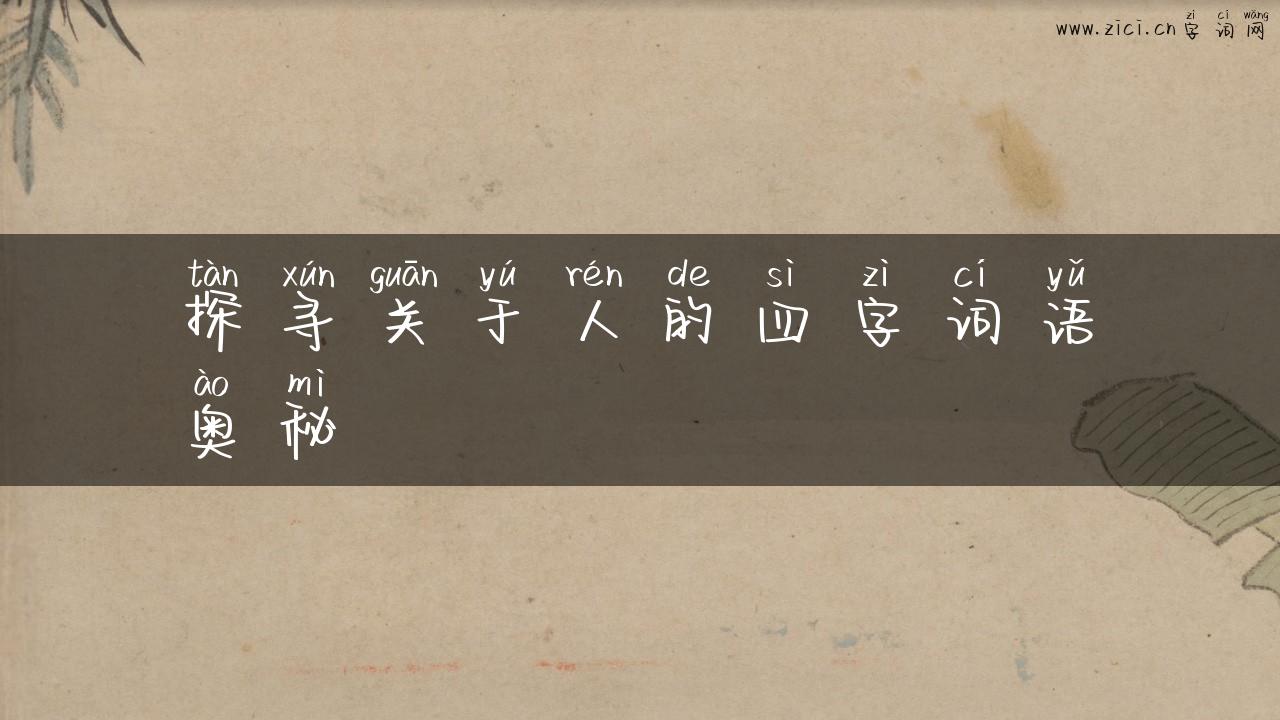 zì cí wǎng
www.zici.cn 字词网
tàn xún guān yú rén de sì zì cí yǔ
探寻关于人的四字词语
ào mì
奥秘